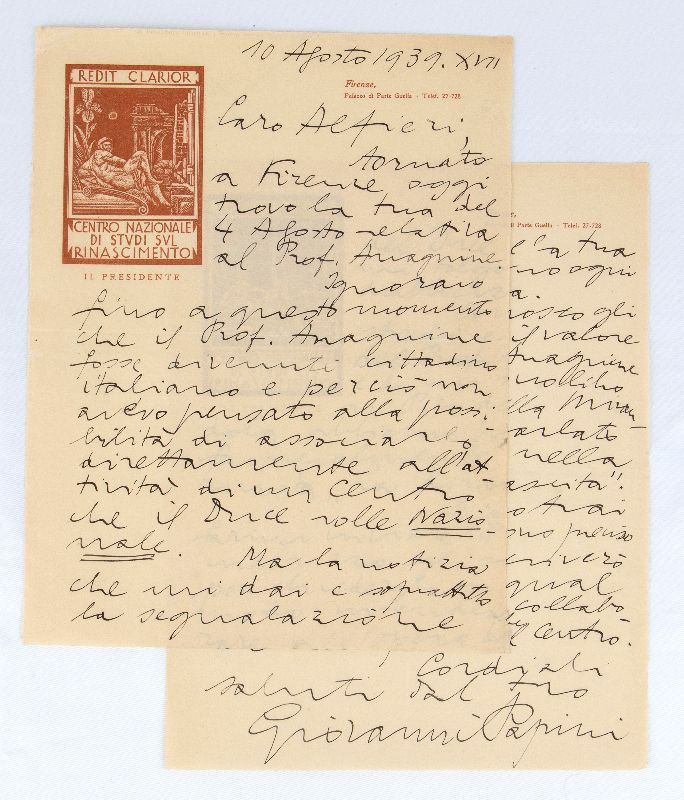 10 Agosto 1939. XVII
REDIT CLARIOR
CENTRO NAZIONALE
DI STVDI SVL
RINASCIMENTO
IL PRESIDENTE
Firenze,
Palazzo di Parte Guelfa - Telef. 27-728
Caro Alfieri,
tornato
a Firenze oggi
trovo la tua del
4 Agosto relativa
al Prof. Anagnine.
Ignoravo
fino a questo momento
che il Prof. Anagnine
fosse divenuti cittadino
italiano e perciò non
avevo pensato alla possi
bilità di associarlo
direttamente all'at-
tività di un Centro
che il Duce volle Nazio-
nale. Ma la notizia
che mi dai e soprattutto
la segnalazione
di Parte Guelfa - Telef. 27-728
la tua
ogni
gli
il valore
Anagnine
nella
collabo
Centro.
Cordiali
saluti dal tuo
Giovanni Papini